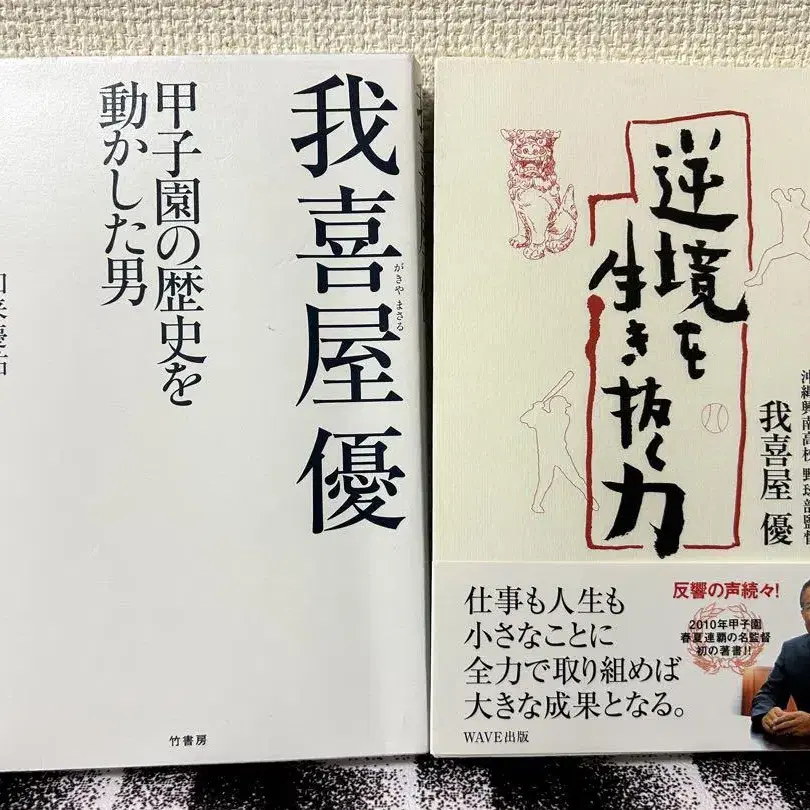 我喜屋 優
がきや まさる
甲子園の歴史を
動かした男
竹書房
逆境を
生き抜く力
沖縄興南高校 野球部監督
我喜屋 優
仕事も人生も
小さなことに
全力で取り組めば
大きな成果となる。
WAVE出版
反響の声続々!
2010年甲子園
春夏連覇の名監督
初の著書!!